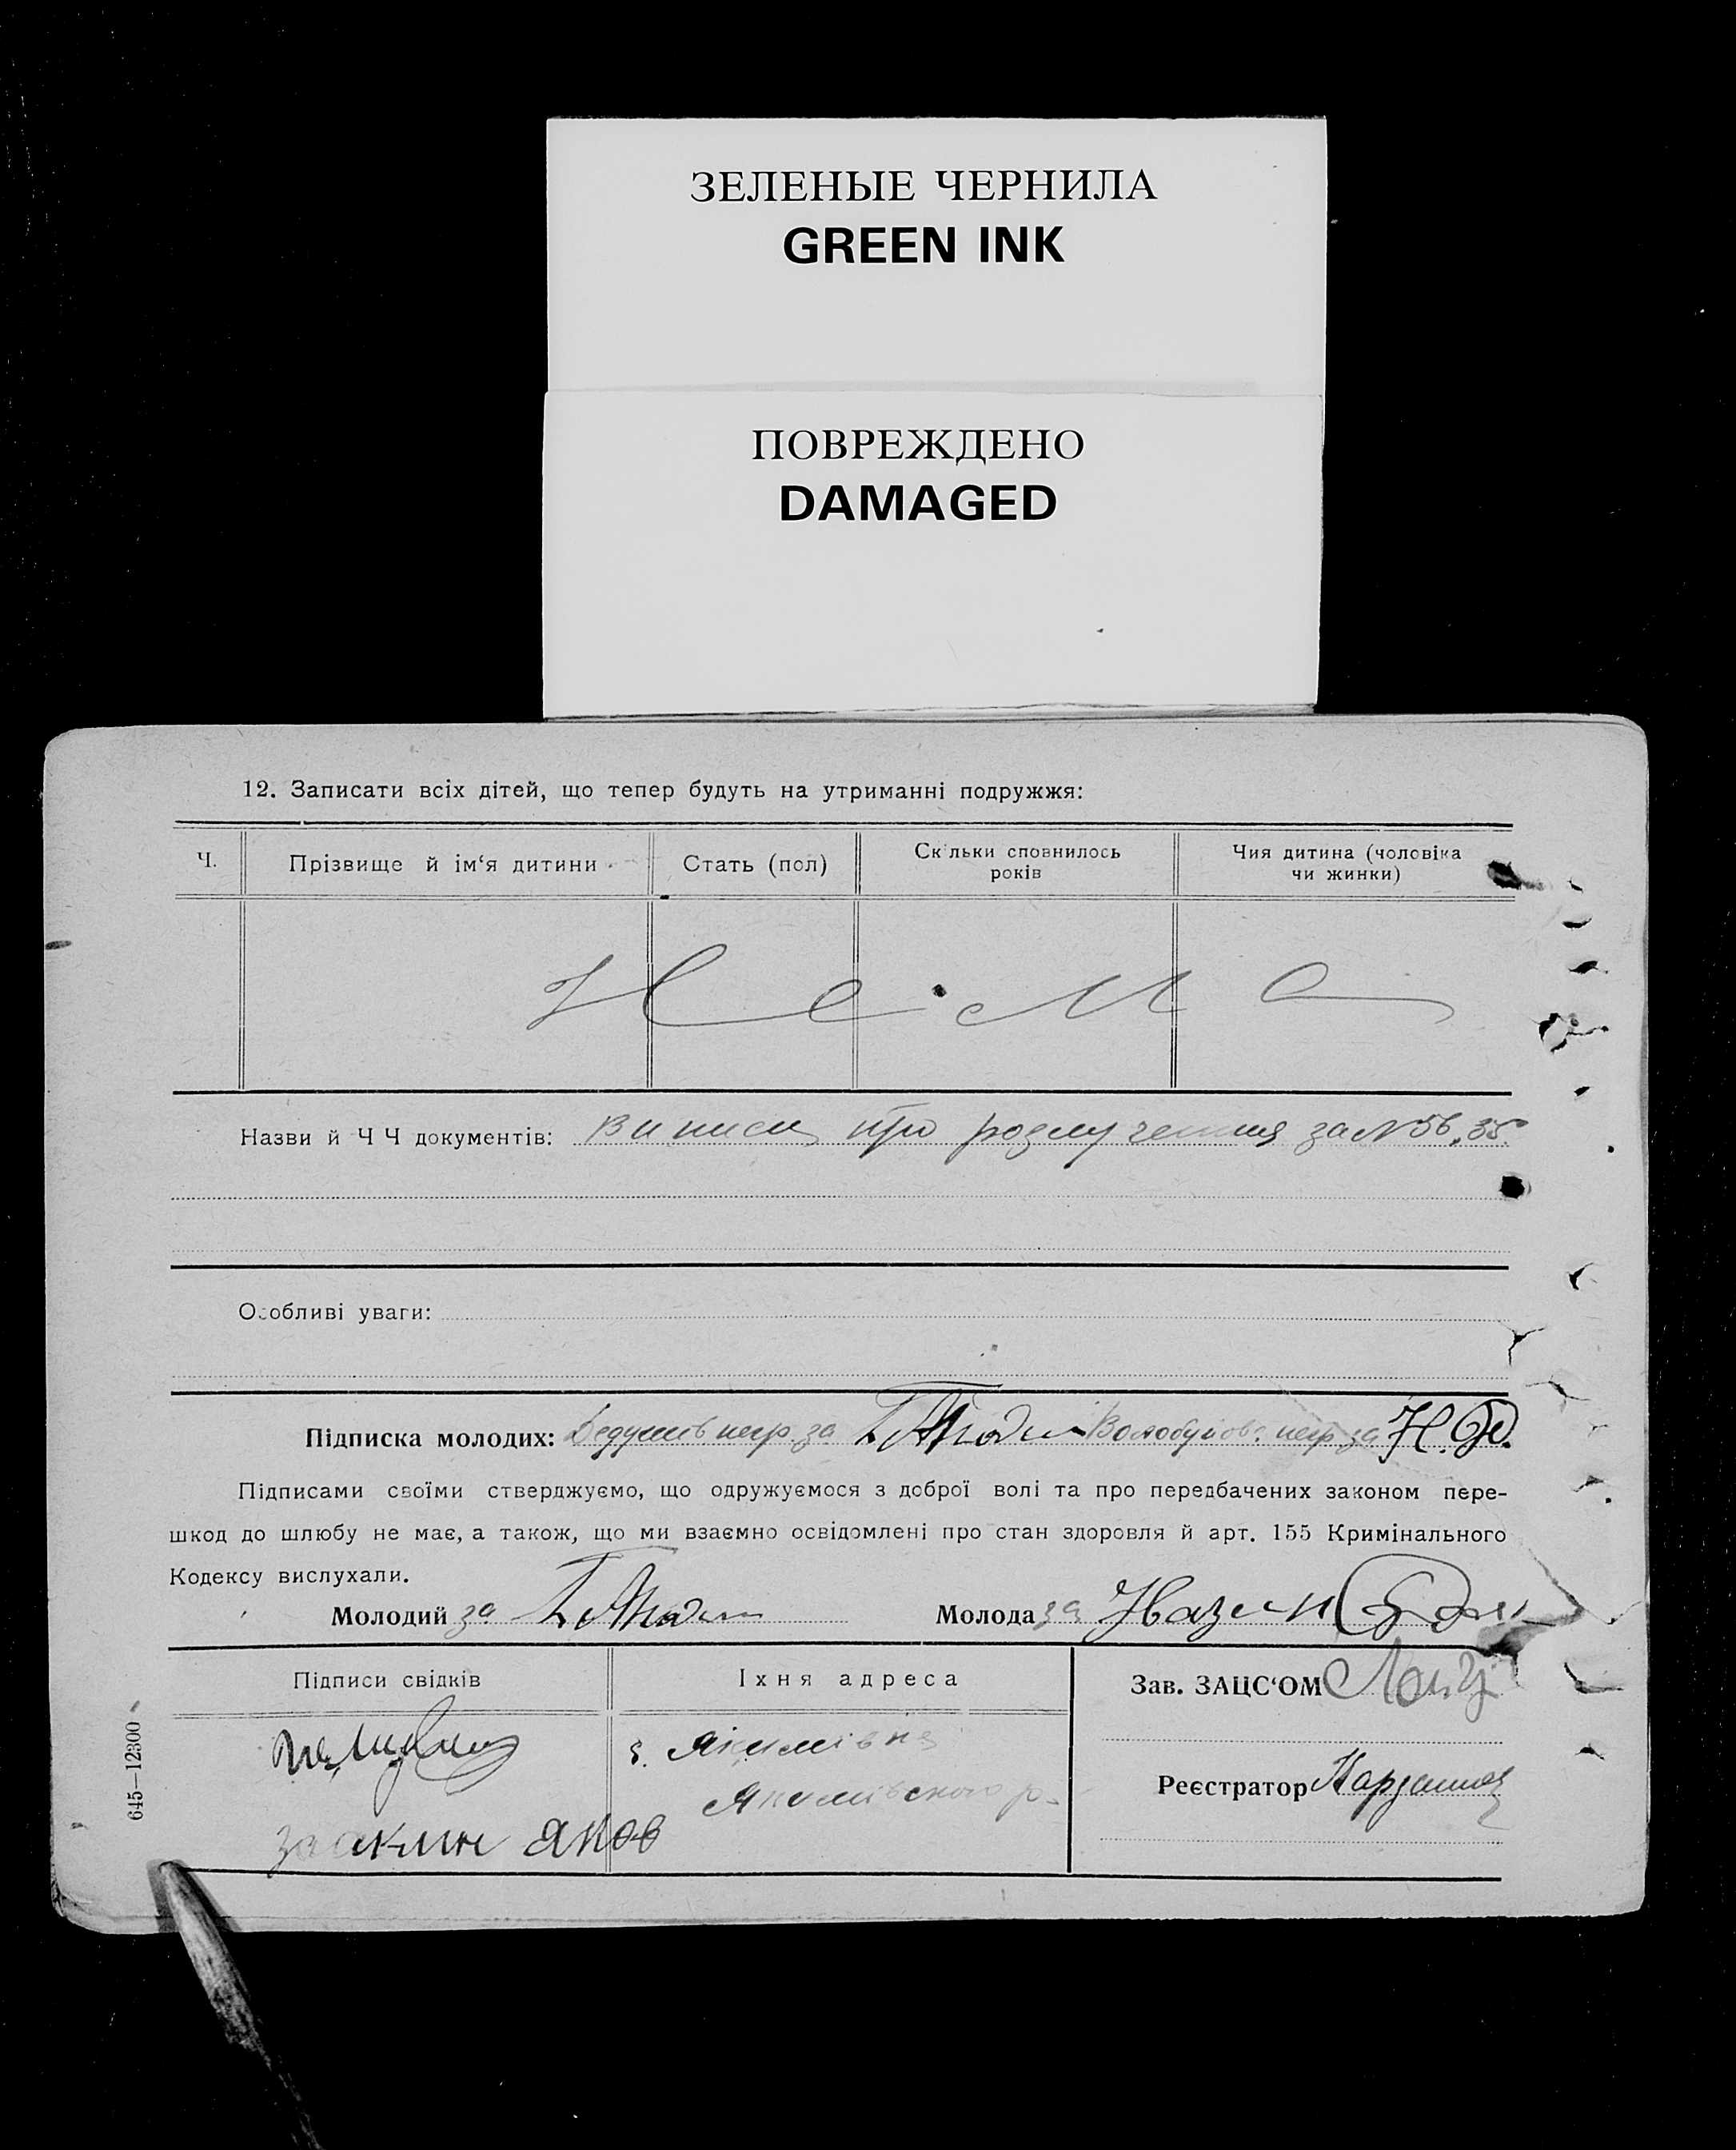 ЗЕЛЕНЫЕ ЧЕРНИЛА
GREEN INK
ПОВРЕЖДЕНО
DAMAGED
12. Записати всіх дітей, що тепер будуть на утриманні подружжя:
Ч. Прізвище й ім‘я дитини Стать (пол) Скільки сповнилось років Чия дитина (чоловіка чи жинки)
Нема
Назви й Ч Ч документів: Виписи про розлучення за N 56, 35
Особливі уваги:
Підписка молодих: негр. за негр за Н.
Підписами своїми стверджуємо, що одружуємося з доброї волі та про передбачених законом пере-
шкод до шлюбу не має, а також, що ми взаємно освідомлені про стан здоровля й арт. 155 Кримінального
Кодексу вислухали.
Молодий за Молода за
Підписи свідків Їхня адреса Зав. ЗАЦС‘ОМ
с. Якимівка
Реєстратор
Якимівського р.
Яков
645—12300